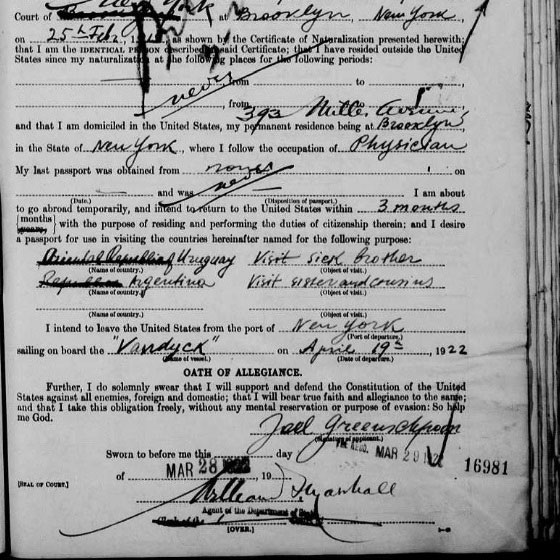 Court of New York at Brooklyn, New York
on 25th Feb., as shown by the Certificate of Naturalization presented herewith;
that I am the IDENTICAL PERSON described in said Certificate; that I have resided outside the United
States since my naturalization at the following places for the following periods:
never from to
, from 393 Avenue,
and that I am domiciled in the United States, my permanent residence being at Brooklyn
in the State of New York, where I follow the occupation of Physician
My last passport was obtained from on
never and was I am about
(Date.) (Disposition of passport.)
to go abroad temporarily, and intend to return to the United States within 3 months
{months years,} with the purpose of residing and performing the duties of citizenship therein; and I desire
a passport for use in visiting the countries hereinafter named for the following purpose:
Uruguay Visit sick brother
(Name of country.) (Object of visit.)
Argentina Visit sister and cousins
(Name of country.) (Object of visit.)
(Name of country.) (Object of visit.)
I intend to leave the United States from the port of New York
(Port of departure.)
sailing on board the "Vandyck" on April 19th, 1922
(Name of vessel.) (Date of departure.)
OATH OF ALLEGIANCE.
Further, I do solemnly swear that I will support and defend the Constitution of the United
States against all enemies, foreign and domestic; that I will bear true faith and allegiance to the same;
and that I take this obligation freely, without any mental reservation or purpose of evasion: So help
me God.
Joel
(Signature of applicant.)
Sworn to before me this day MAR 29
of MAR 28 1922, 19 16981
[SEAL OF COURT.] Marshall
Agent of the Department of State
[OVER.]